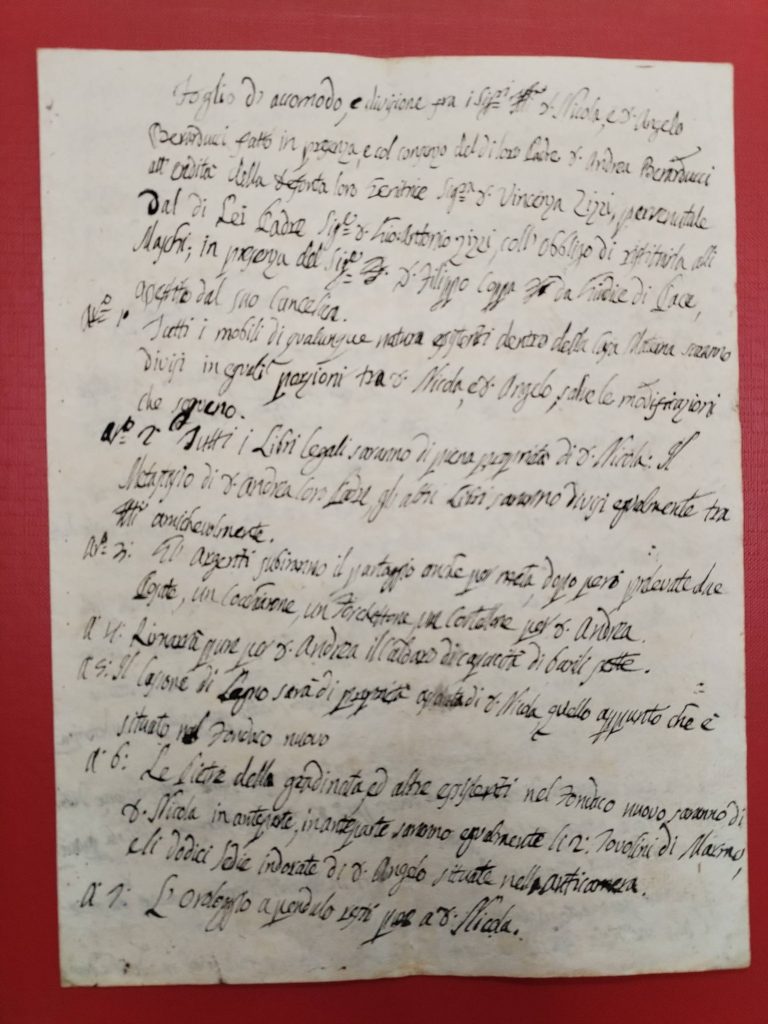 Foglio di accomodo, e divisione fra i Sig.ri D. Nicola, e D. Angelo
Berarducci fatto in presenza, e col consenzo del di loro Padre D. Andrea Berarducci
all'eredità della defonta loro Genitrice Sig.ra D. Vincenza Zizzi, pervenutale
Dal di Lei Padre Sig.r D. Zizzi, coll'obbligo di restituirla alli
Maschi; in presenza del Sig.r D. Filippo Coppa da Giudice di Pace,
assistito dal suo Canceliere.
Ar.o 1.o Tutti i mobili di qualunque natura esistenti dentro della Casa Materna saranno
divisi in eguali porzioni tra D. Nicola, e D. Angelo, salve le modificazioni
che seguono.
Ar.o 2.o Tutti i Libri legali saranno di piena proprietà di D. Nicola: Il
di D. Andrea loro Padre, gli altri Libri saranno divisi egualmente tra
amichevolmente.
Ar.o 3: Gli Argenti subiranno il partaggio anche per metà, dopo però prelevate due
Posate, un Cocchiarone, un Forchettone, un Cortellone per D. Andrea.
A.o 4: Rimarrà pure per D. Andrea il Caldaro di capacità di barile sette.
A.o 5: Il Casone di Legno sarà di proprietà di D. Nicola, quello appunto che è
situato nel Fondaco nuovo
A.o 6: Le Pietre della gradinata, ed altre esistenti nel Fondaco nuovo, saranno di
D. Nicola in anteparte, in anteparte saranno egualmente li 2: Tovolini di Marmo,
e li dodici Sedie indorate di D. Angelo situate nell'anticamera.
A.o 7: L'Orologgio a pendulo resti pure a D. Nicola.